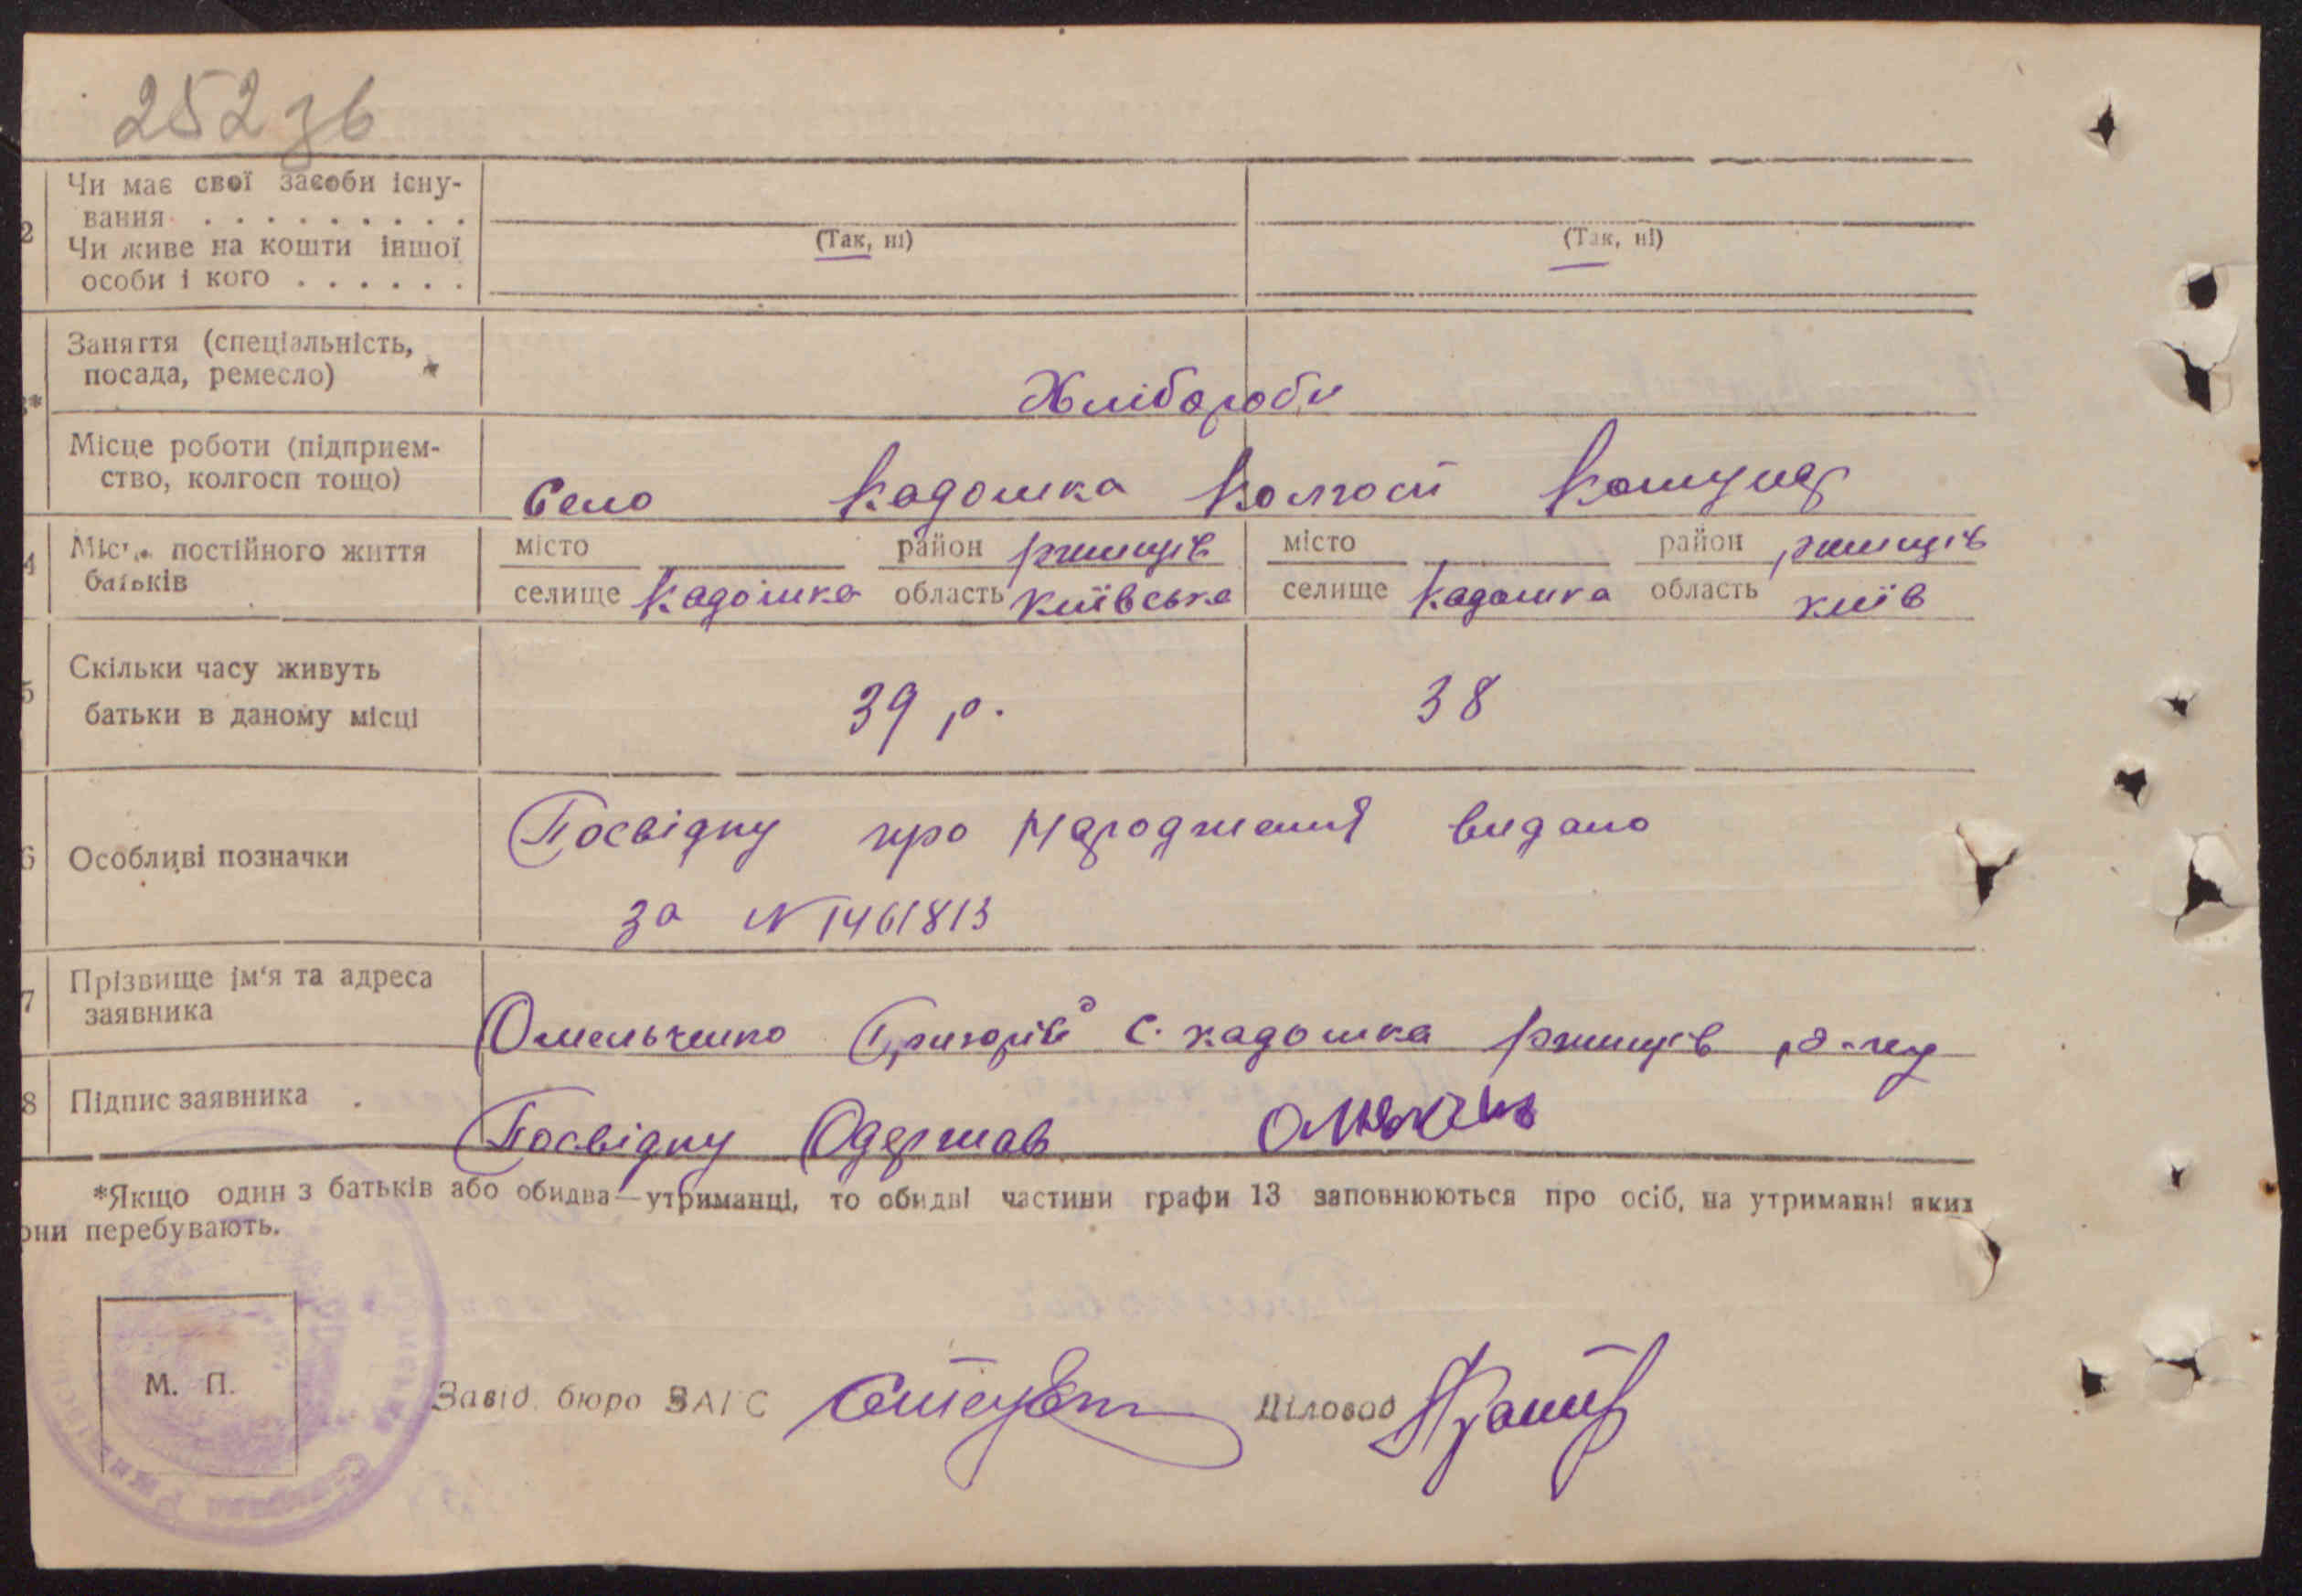 252 зв
2 Чи має свої засоби існу-
вання . . . . . . . . .
(Так, ні) (Так, ні)
Чи живе на кошти іншої
особи і кого . . . . . .
Заняття (спеціальність,
посада, ремесло)
Хлібороби
Місце роботи (підприєм-
ство, колгосп тощо)
Село Кадомка Колгосп Комунар
4 Місце постійного життя
батьків
місто район ржищів місто район ржищів
селище Кадомка область київська селище Кадомка область київ
5 Скільки часу живуть
батьки в даному місці
39 р. 38
6 Особливі позначки
Посвідку про народження видано
за N 1461813
7 Прізвище ім'я та адреса
заявника
Омельченко Григорій с. кадомка ржищів р-ну
8 Підпис заявника .
Посвідку Одержав
*Якщо один з батьків або обидва—утриманці, то обидві частини графи 13 заповнюються про осіб, на утриманні яких
они перебувають.
М. П.
Завід. бюро ЗАГС Діловод